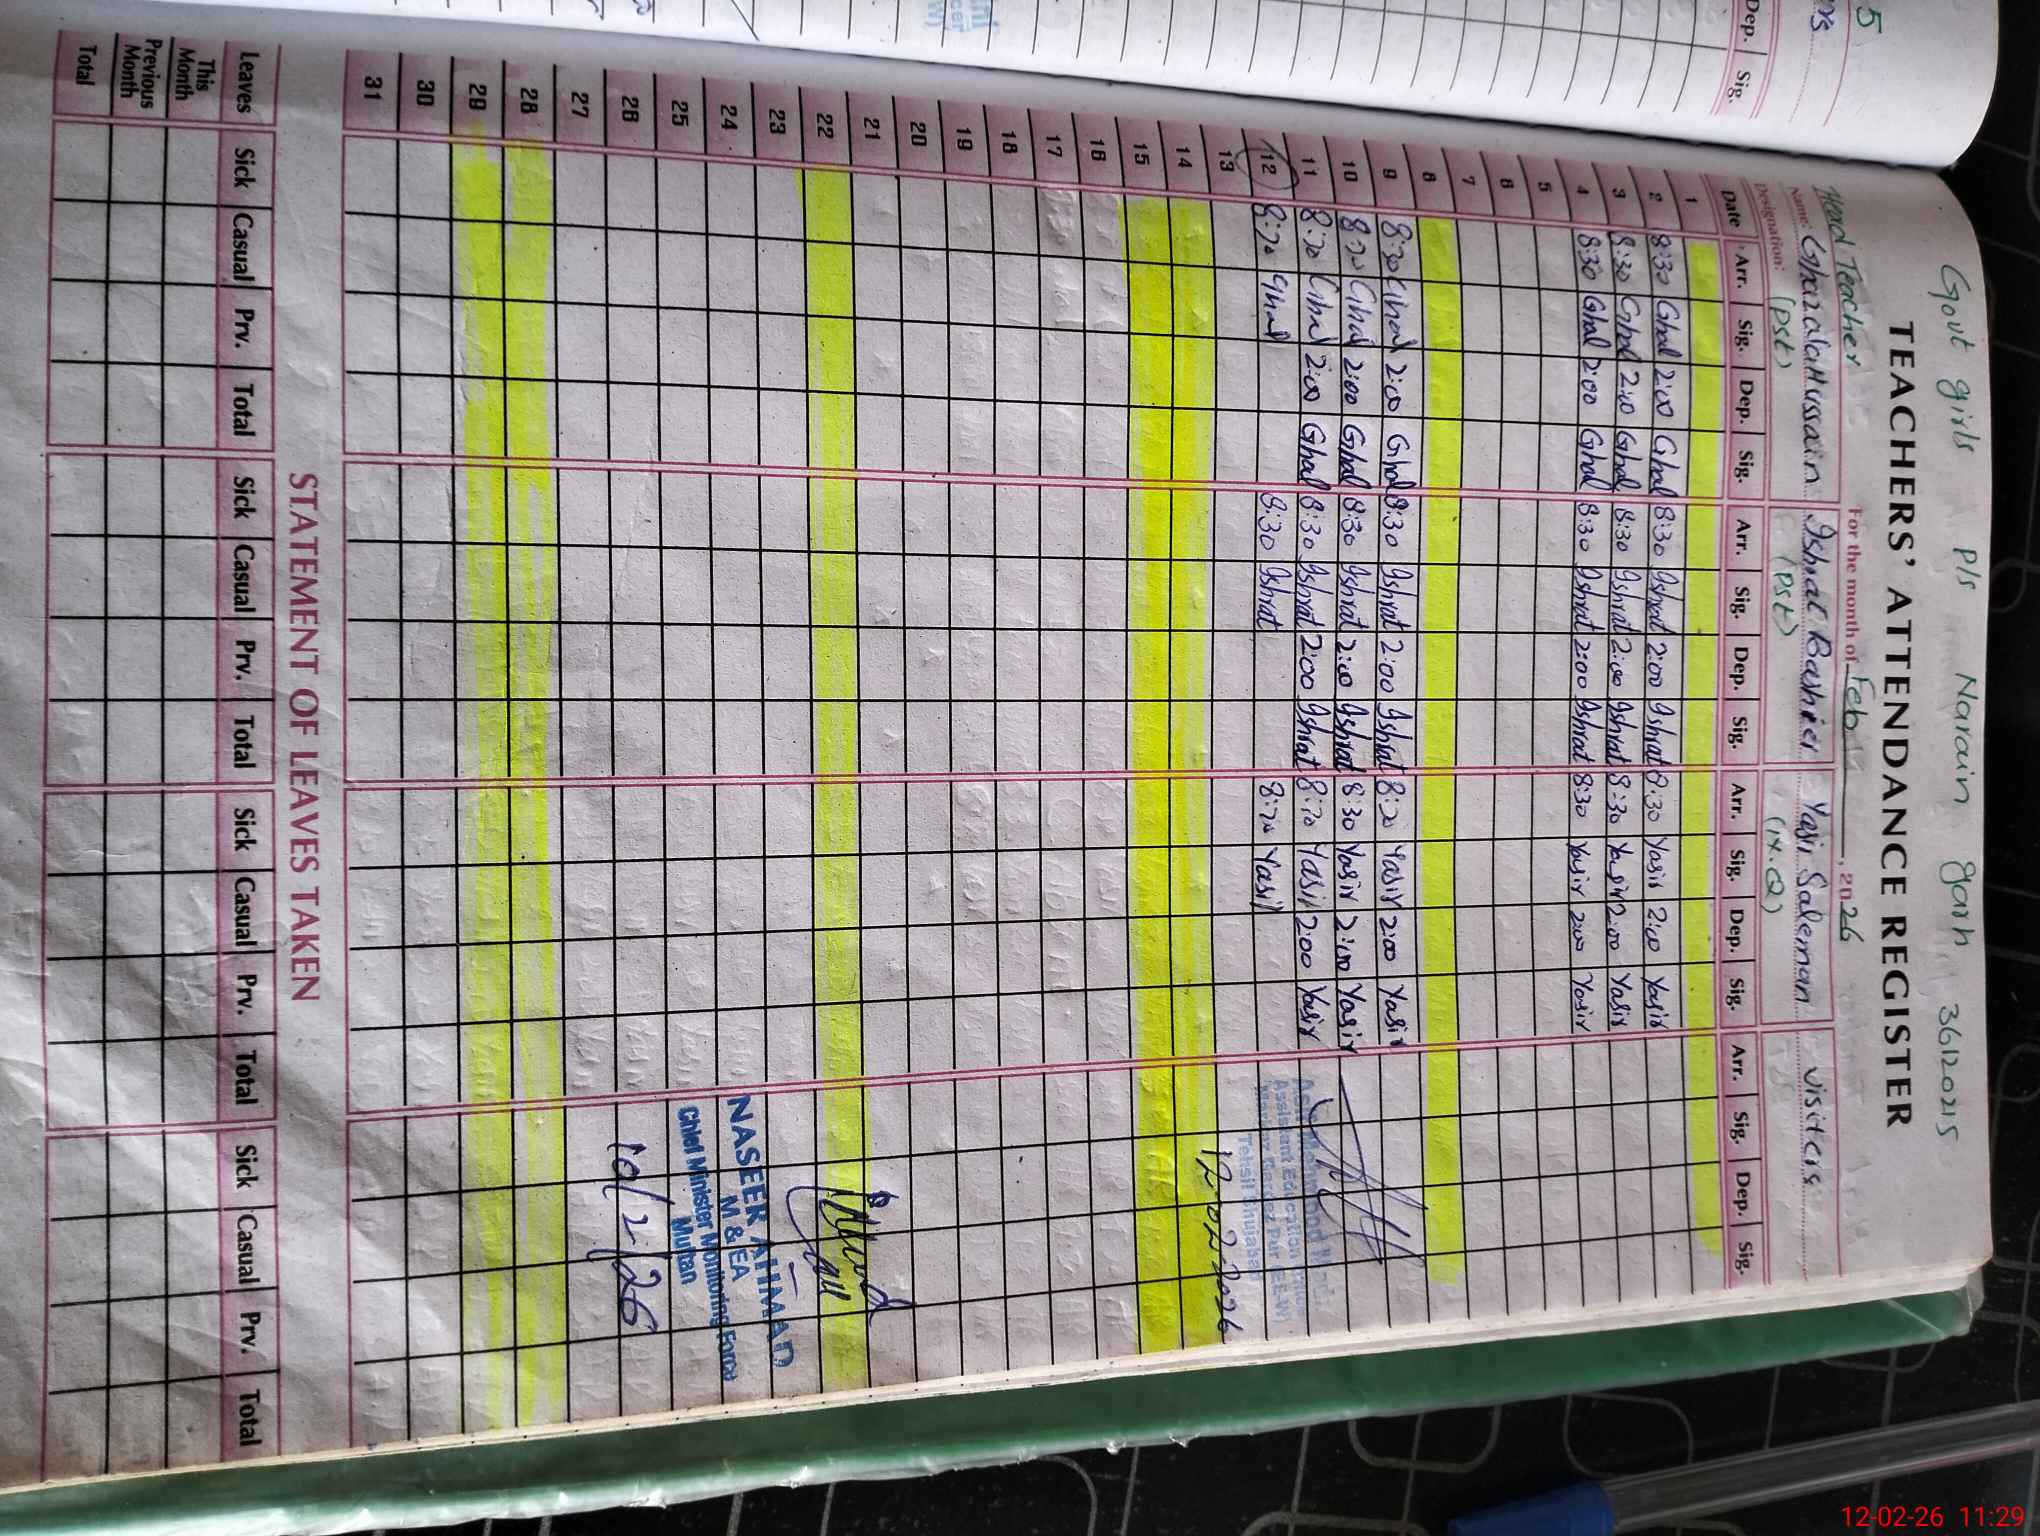 5
Dep. Sig.
Govt girls p/s Narain garh 36120215
TEACHERS' ATTENDANCE REGISTER
Head Teacher For the month of Feb, 2026
Name: Ghazala Hussain Ishrat Bashier Yasir Saleman visiters
Designation: (pst) (pst) (N.Q)
Date Arr. Sig. Dep. Sig. Arr. Sig. Dep. Sig. Arr. Sig. Dep. Sig. Arr. Sig. Dep. Sig.
1
2 8:30 Ghal 2:00 Ghal 8:30 Ishrat 2:00 Ishrat 8:30 Yasir 2:00 Yasir
3 8:30 Ghal 2:00 Ghal 8:30 Ishrat 2:00 Ishrat 8:30 Yasir 2:00 Yasir
4 8:30 Ghal 2:00 Ghal 8:30 Ishrat 2:00 Ishrat 8:30 Yasir 2:00 Yasir
5
6
7
8
9 8:30 Ghal 2:00 Ghal 8:30 Ishrat 2:00 Ishrat 8:20 Yasir 2:00 Yasir
10 8:20 Ghal 2:00 Ghal 8:30 Ishrat 2:00 Ishrat 8:30 Yasir 2:00 Yasir
11 8:20 Ghal 2:00 Ghal 8:30 Ishrat 2:00 Ishrat 8:20 Yasir 2:00 Yasir
Assistant Education Officer
12 8:20 Ghal 8:30 Ishrat 8:20 Yasir
Tehsil Shujabad
13 12-02-2026
14
15
16
17
18
19
20
21
22
23
NASEER AHMAD
24 M & EA
25 Chief Minister Monitoring Force
Multan
26 10/2/26
27
28
29
30
31
STATEMENT OF LEAVES TAKEN
Leaves Sick Casual Prv. Total Sick Casual Prv. Total Sick Casual Prv. Total Sick Casual Prv. Total
This Month
Previous Month
Total
12-02-26 11:29